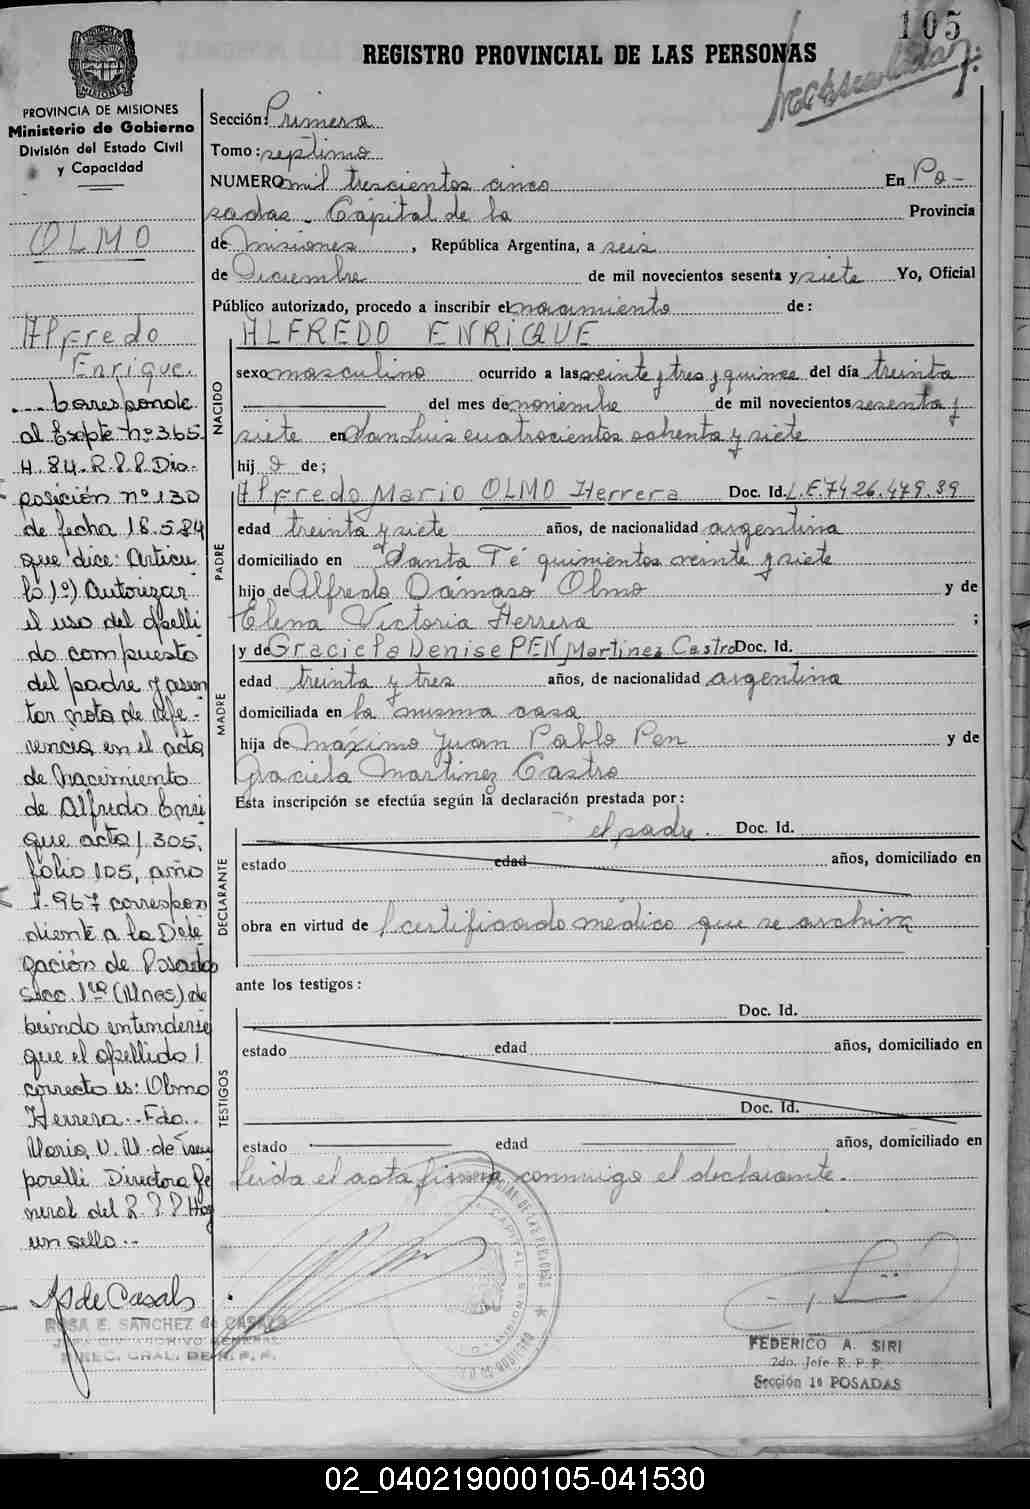 105
REGISTRO PROVINCIAL DE LAS PERSONAS
PROVINCIA DE MISIONES
Ministerio de Gobierno
División del Estado Civil
y Capacidad
OLMO
Alfredo
Enrique.
... Corresponde
al Expte nº 365
H. 84. R.P.P. Dis-
posición nº 130
de fecha 18.5.84
que dice: Articu
lo 1º) Autorizar
el uso del apelli
do compuesto
del padre y asen
tar nota de refe-
rencia en el acta
de Nacimiento
de Alfredo Enri
que acta 1305,
folio 105, año
1.967 correspon
diente a la Dele
gación de Posadas
Secc. 1ra (Mnes) de
biendo entenderse
que el apellido
correcto es: Olmo
Herrera.. Fdo.
María V. M. de
porelli Directora Ge
neral del R.P.P Hay
un sello..
ROSA E. SANCHEZ de CASALS
JEFA DIV. ARCHIVO GENERAL
DIREC. GRAL. DE R. P. P.
Sección: Primera
Tomo: septimo
NUMERO mil trescientos cinco En Po-
sadas - Capital de la Provincia
de Misiones, República Argentina, a seis
de Diciembre de mil novecientos sesenta y siete Yo, Oficial
Público autorizado, procedo a inscribir el nacimiento de:
NACIDO
ALFREDO ENRIQUE
sexo masculino ocurrido a las veinte y tres y quince del día treinta
del mes de noviembre de mil novecientos sesenta y
siete en San Luis cuatrocientos ochenta y siete
hij o de;
PADRE
Alfredo Mario OLMO Herrera Doc. Id. L.E.7426.479.39
edad treinta y siete años, de nacionalidad argentina
domiciliado en Santa Fé quinientos veinte y siete
hijo de Alfredo Dámaso Olmo y de
Elena Victoria Herrera ;
MADRE
y de Graciela Denise PEN Martinez Castro Doc. Id.
edad treinta y tres años, de nacionalidad argentina
domiciliada en la misma casa
hija de Máximo Juan Pablo Pen y de
Graciela Martinez Castro
Esta inscripción se efectúa según la declaración prestada por:
DECLARANTE
el padre. Doc. Id.
estado edad años, domiciliado en
obra en virtud de l certificado médico que se archiva
ante los testigos:
TESTIGOS
Doc. Id.
estado edad años, domiciliado en
Doc. Id.
estado edad años, domiciliado en
Leida el acta firma conmigo el declarante.
FEDERICO A. SIRI
2do. Jefe R. P. P.
Sección 1ª POSADAS
02_040219000105-041530